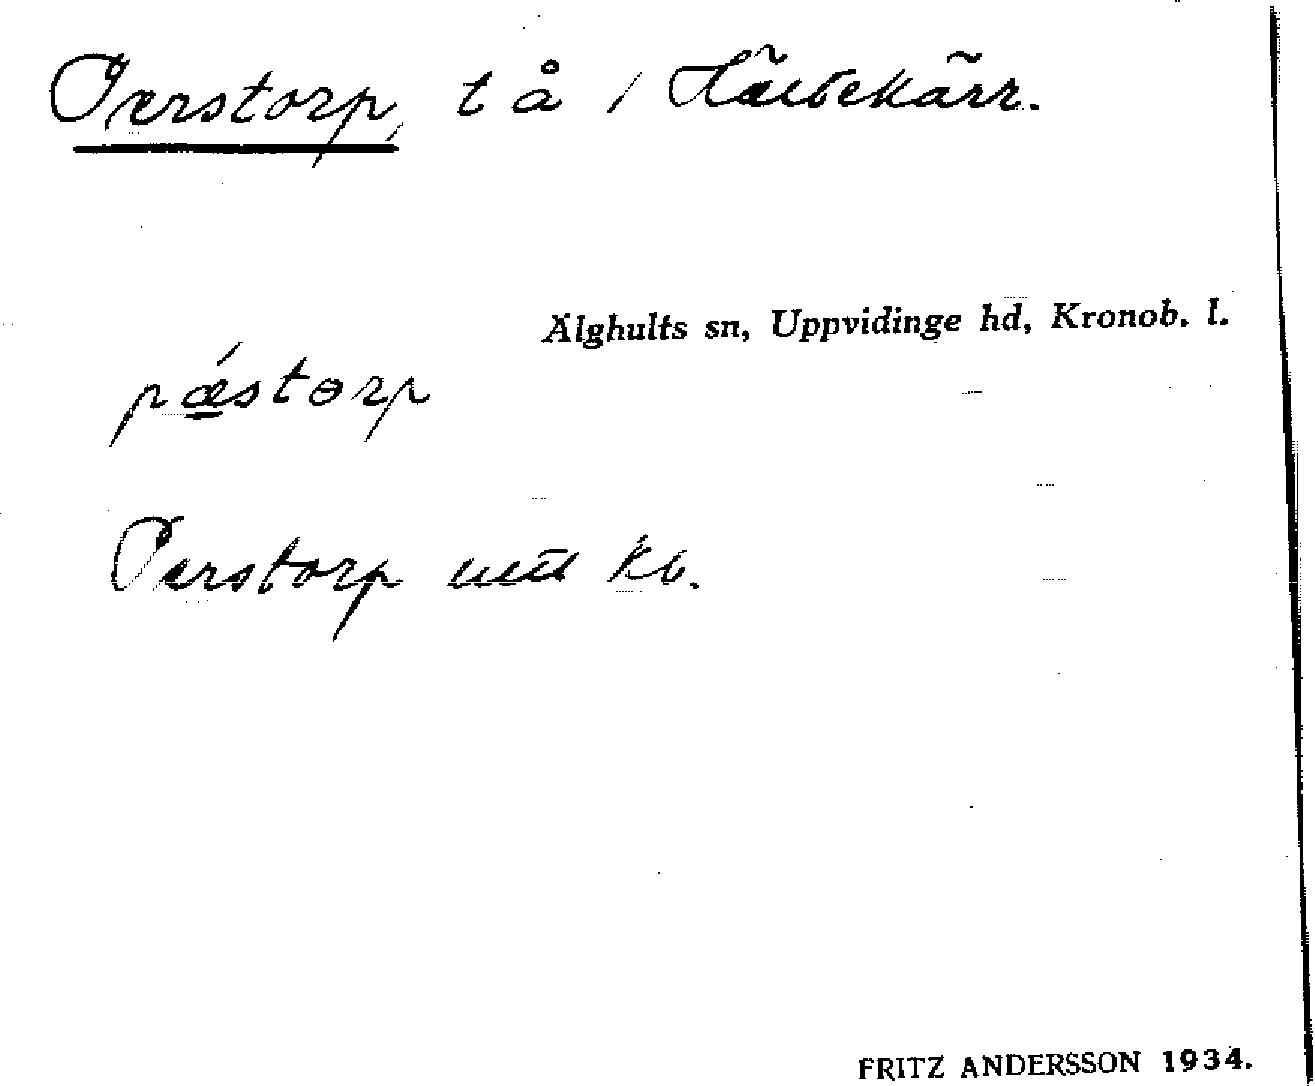 Perstorp, t å /
Älghults sn, Uppvidinge hd, Kronob. l.
pǽstɵrp
Perstorp kb.
FRITZ ANDERSSON 1934.